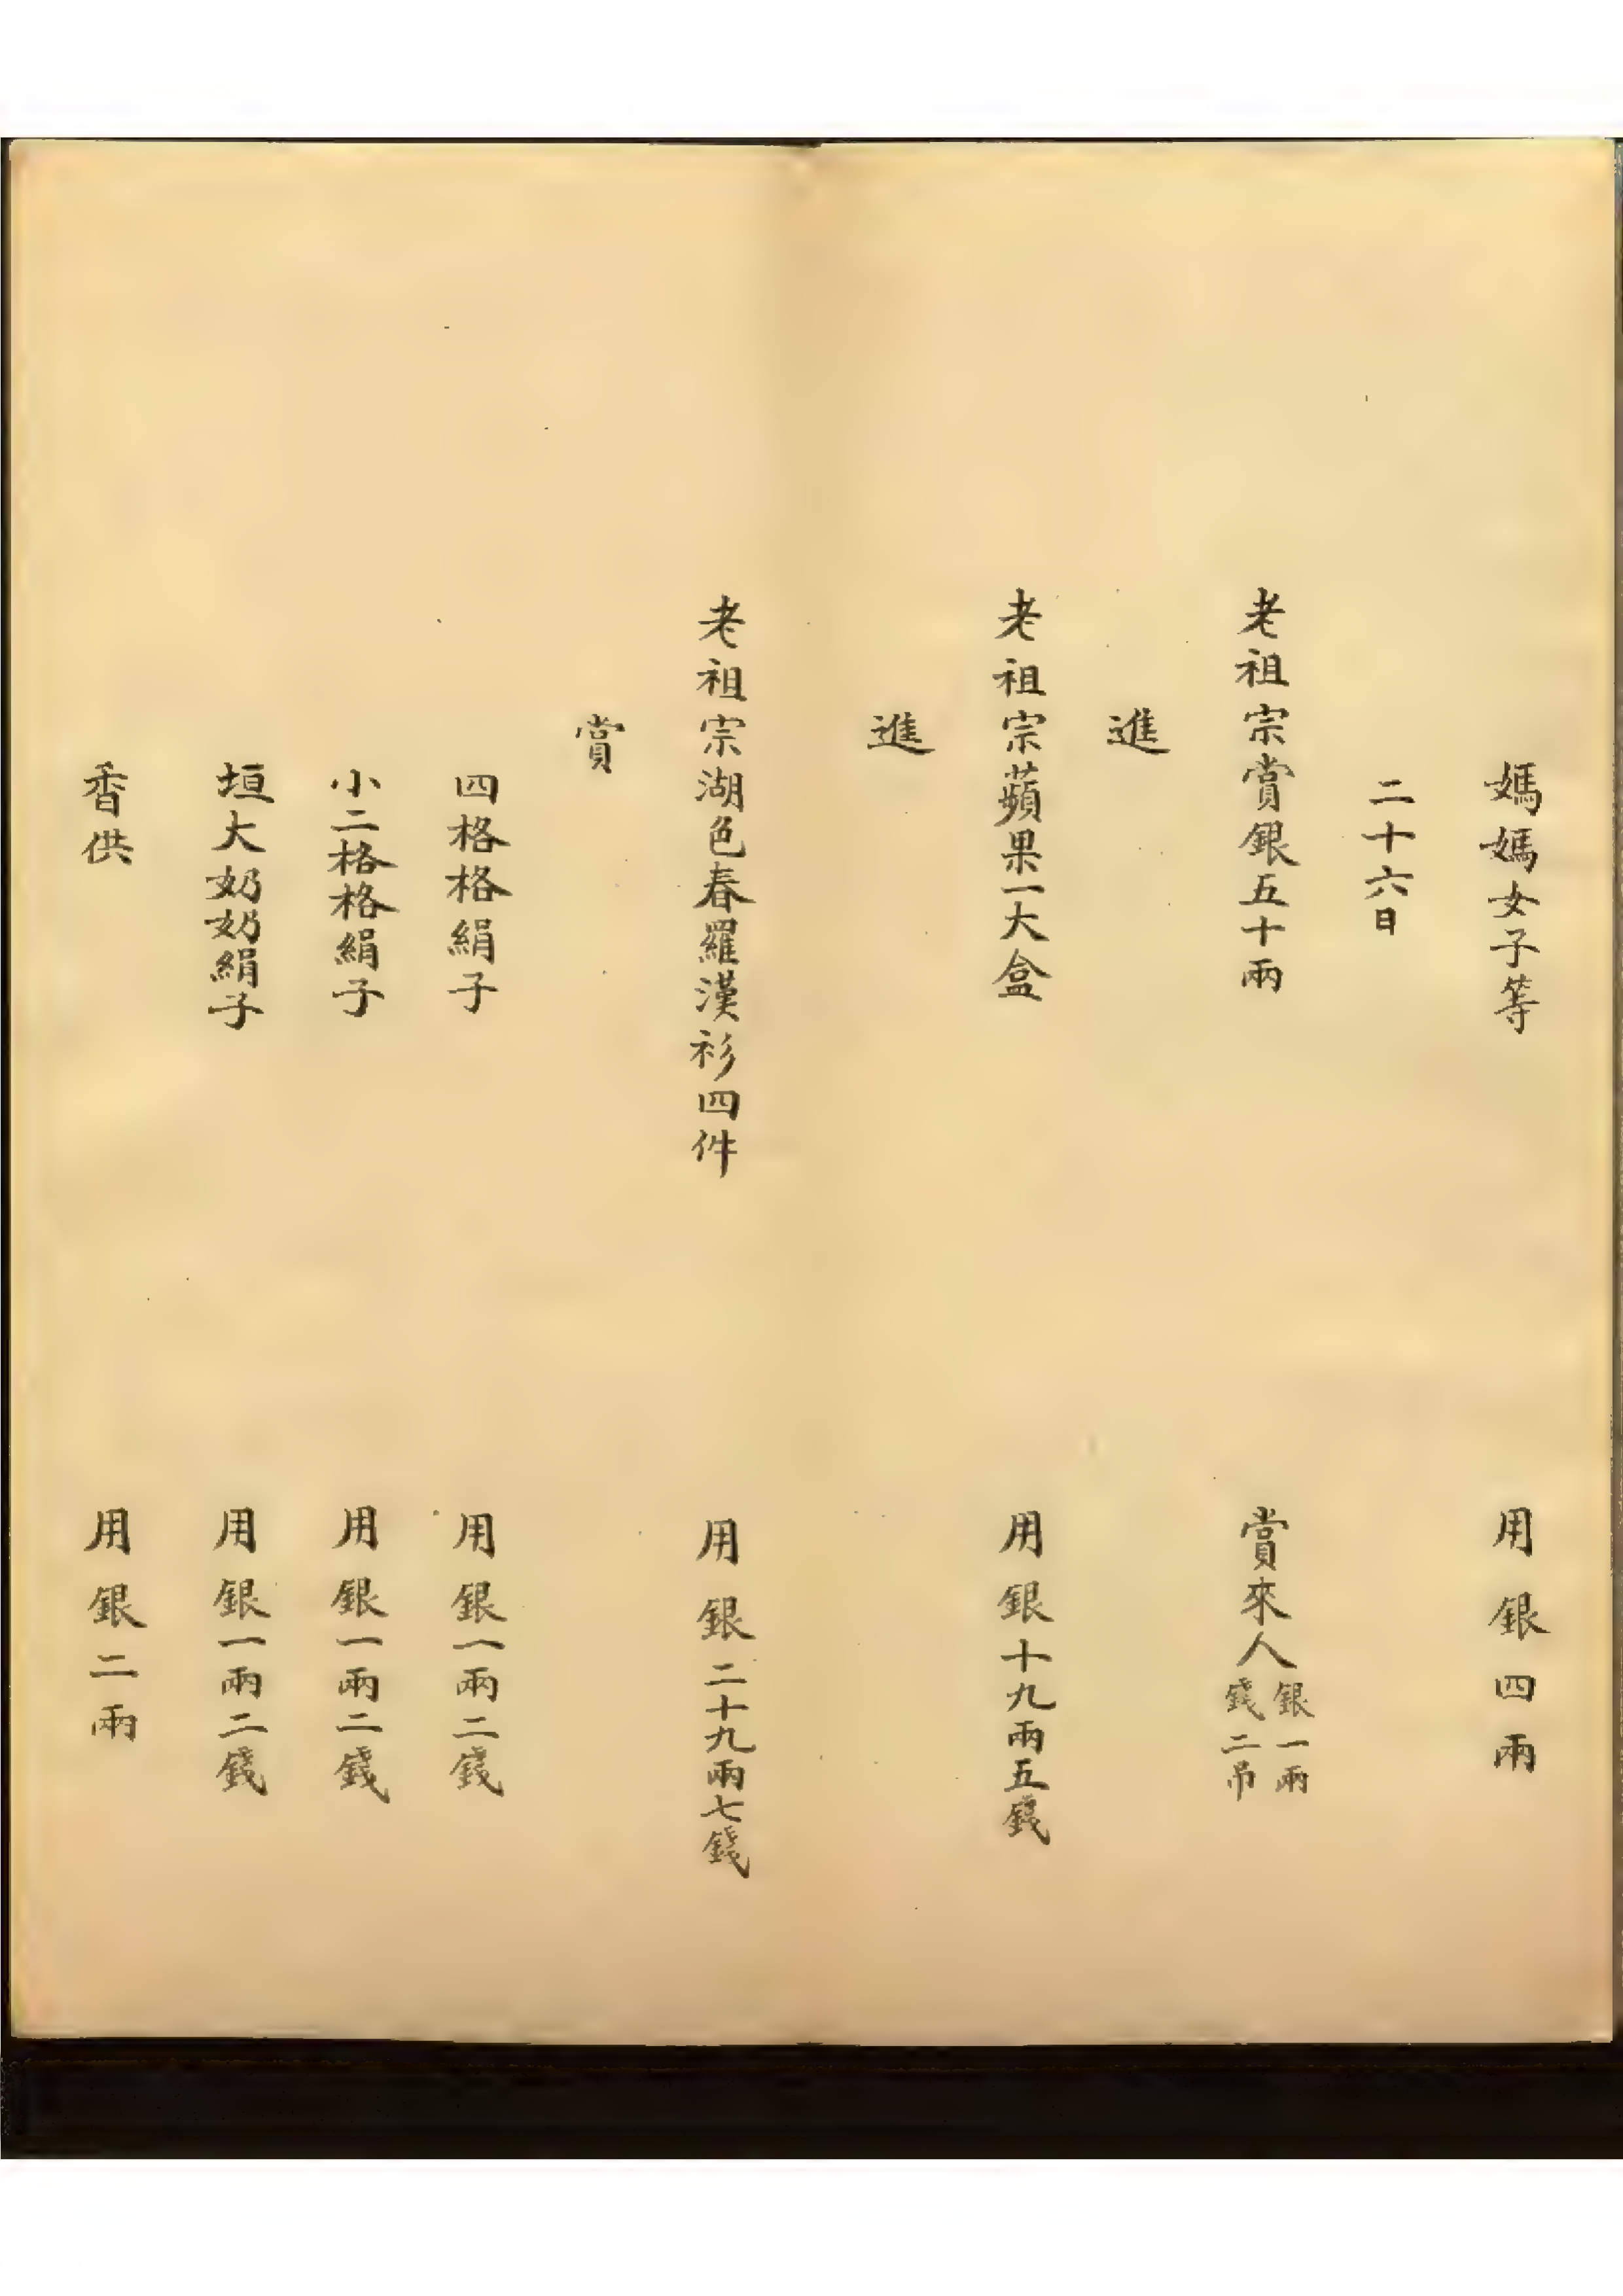 媽媽女子等 用銀四兩
二十六日
老祖宗賞銀五十兩 賞來人銀一兩錢二吊
進
老祖宗蘋果一大盒 用銀十九兩五錢
進
老祖宗湖色春羅漢衫四件 用銀二十九兩七錢
賞
四格格絹子 用銀一兩二錢
小二格格絹子 用銀一兩二錢
垣大奶奶絹子 用銀一兩二錢
香供 用銀二兩